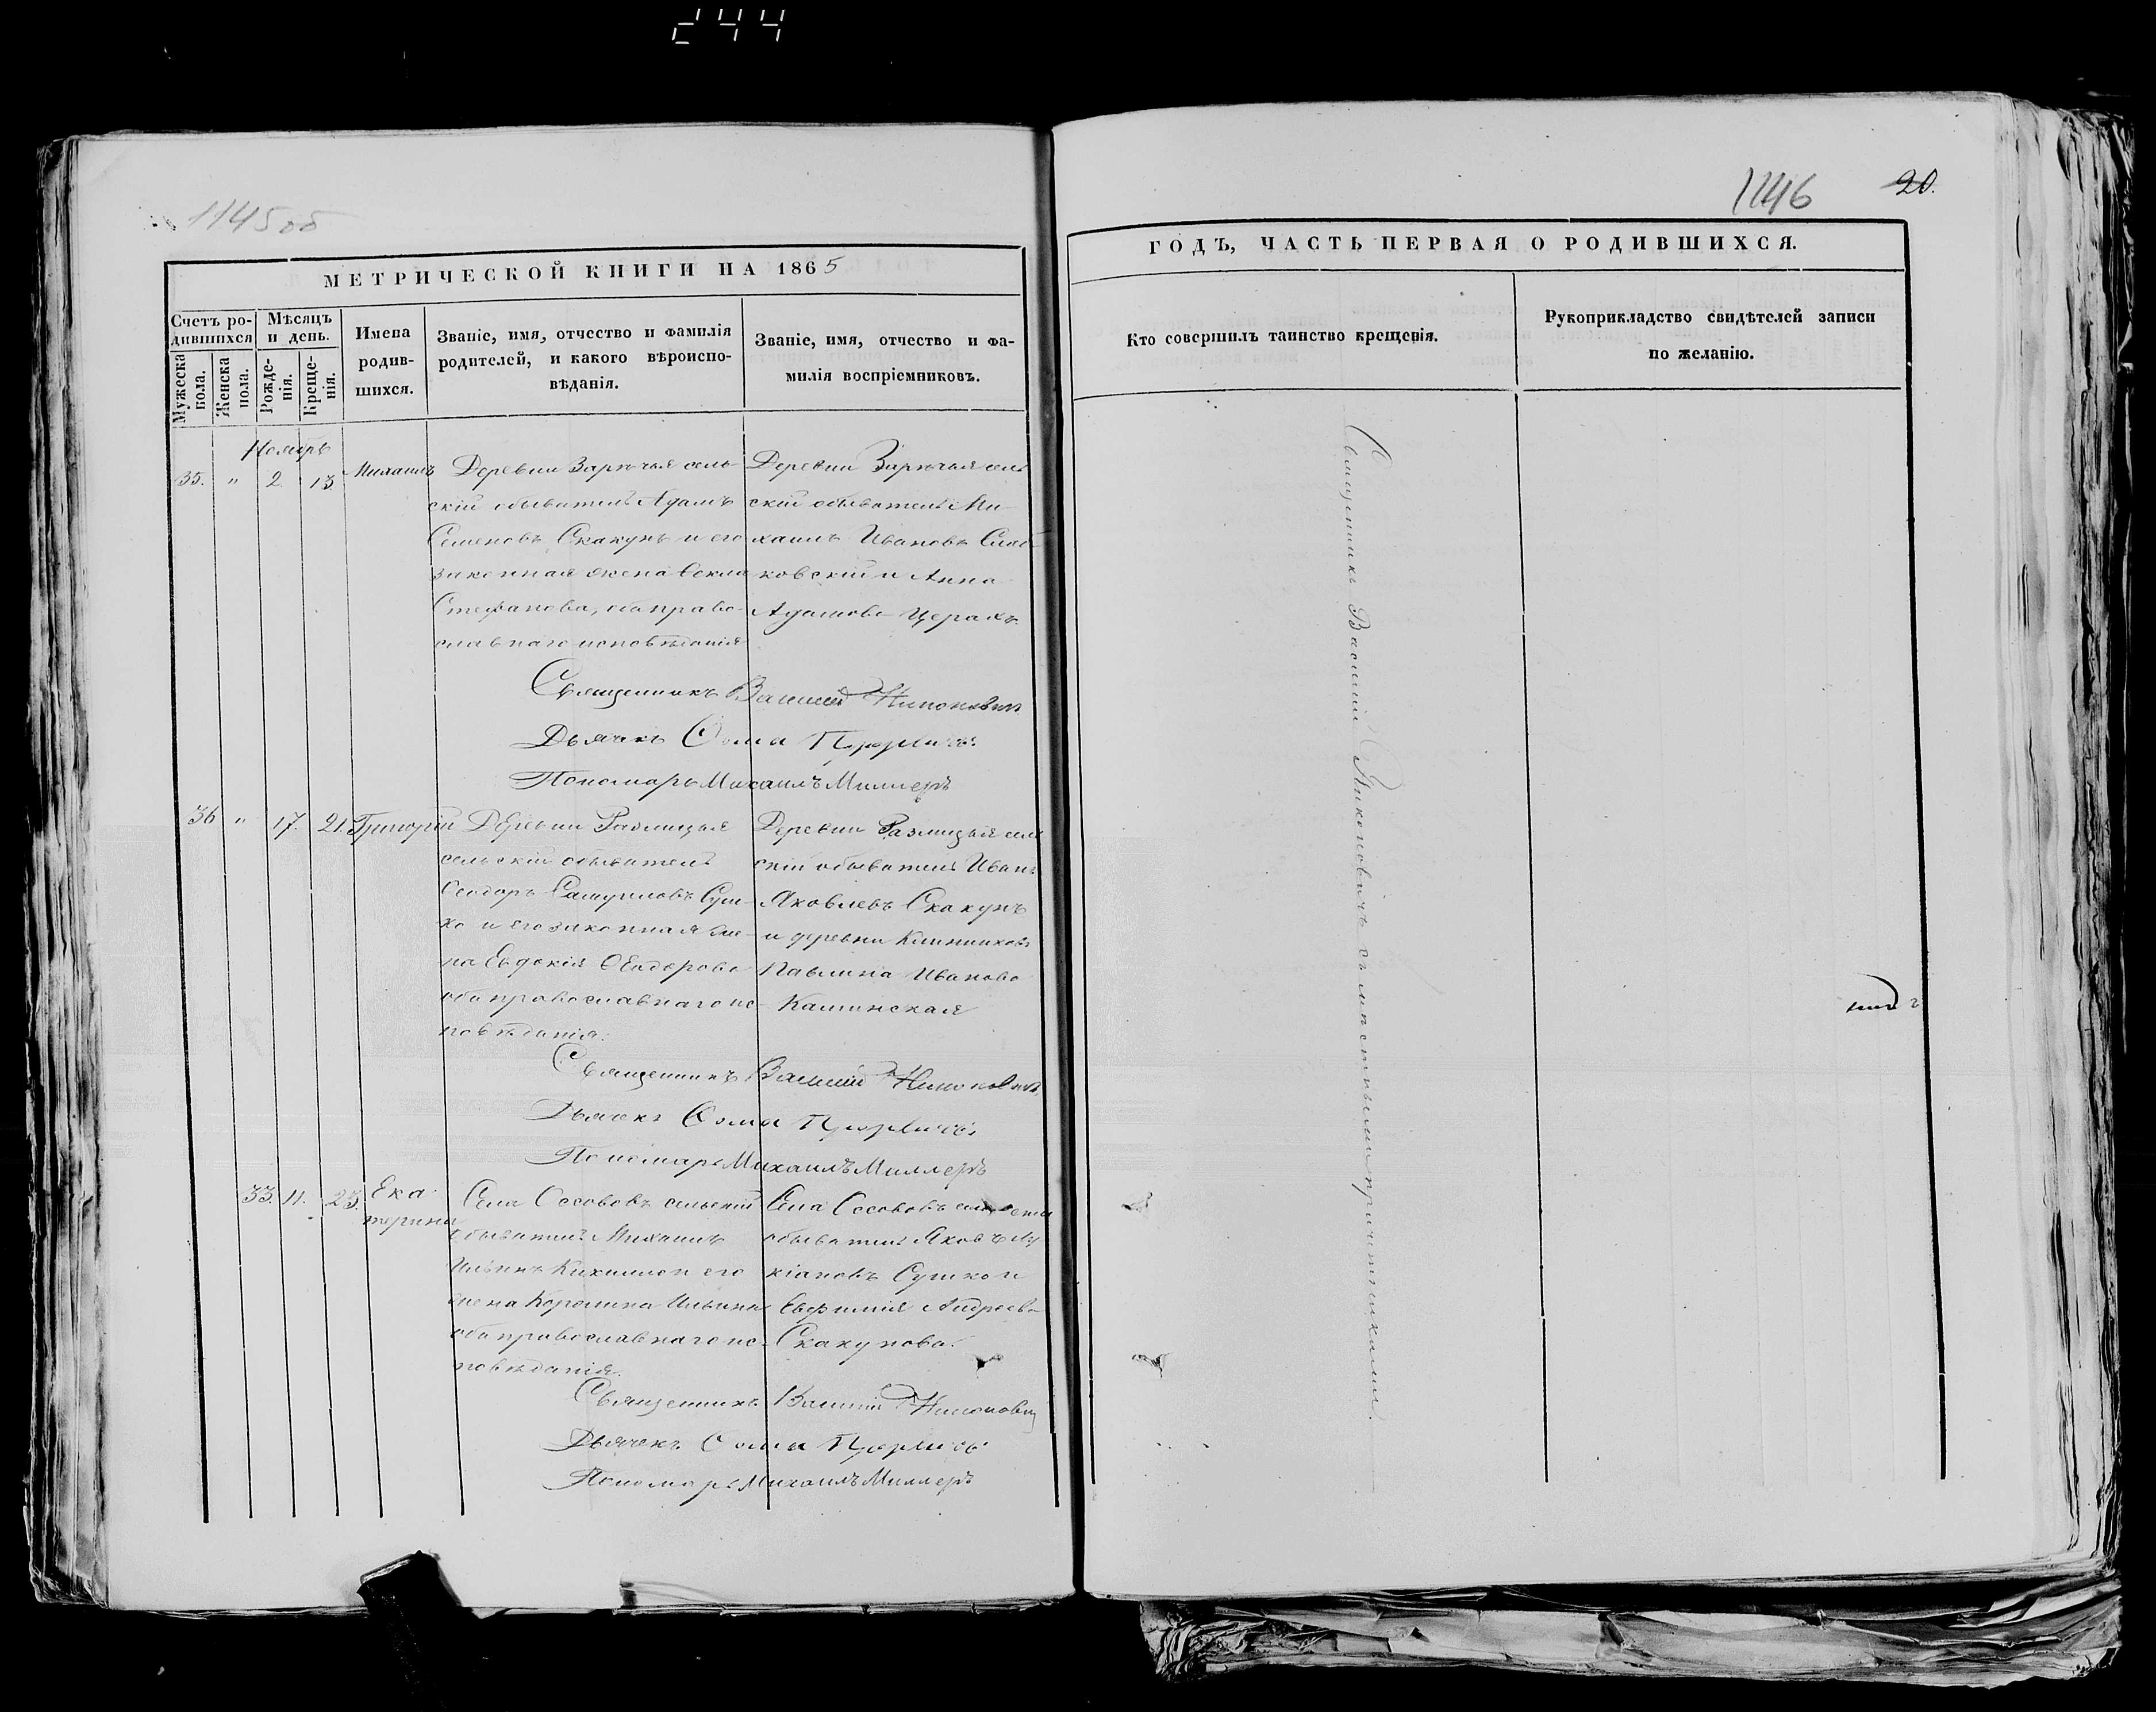 244
1145об
МЕТРИЧЕСКОЙ КНИГИ НА 1865
Счетъ ро-
дившихся
Мѣсяцъ
и день.
Мужеска
пола.
Женска
пола.
Рожде-
нія.
Креще-
нія.
Имена
родив-
шихся.
Званіе, имя, отчество и фамилія
родителей, и какого вѣроиспо-
вѣданія.
Званіе, имя, отчество и фа-
милія воспріемниковъ.
Ноябрь
35. " 2. 13. Михаилъ
Деревни Зарѣчья сель-
скій обыватель Адамъ
Семеновъ Скакунъ и его
законная жена Фекла
Стефанова, оба право-
славнаго исповѣданія
Деревни Зарѣчья сель
скій обыватель Ми-
хаилъ Ивановъ
ковскій и Анна
Адамова
Священникъ Василій Никоновичъ
Дьячекъ Ѳома
Пономарь Михаилъ Миллеръ
36 " 17. 21. Григорій
Деревни
сельскій обыватель
Ѳеодоръ Самуиловъ Суш-
ко и его законная же-
на Евдокія Ѳеодорова
оба православнаго ис-
повѣданія.
Деревни сель
скій обыватель Иванъ
Яковлевъ Скакунъ
и деревни
Павлина Иванова
Каминская
Священникъ Василій Никоновичъ
Дьячекъ Ѳома
Пономарь Михаилъ Миллеръ
33. 11. 25. Ека-
терина
Села Оссовокъ сельскій
обыватель Михаилъ
Ильинъ и его
жена Ильина
оба православнаго ис-
повѣданія.
Села Оссовокъ
обыватель Яковъ Лу
кіановъ Сушко и
Евфимія Андреева
Скакунова.
Священникъ Василій Никоновичъ
Дьячекъ Ѳома
Пономарь Михаилъ Миллеръ
1146 20.
ГОДЪ, ЧАСТЬ ПЕРВАЯ О РОДИВШИХСЯ.
Кто совершилъ таинство крещенія.
Рукоприкладство свидѣтелей записи
по желанію.
Священникъ Василій Никоновичъ съ мѣстными причетниками.